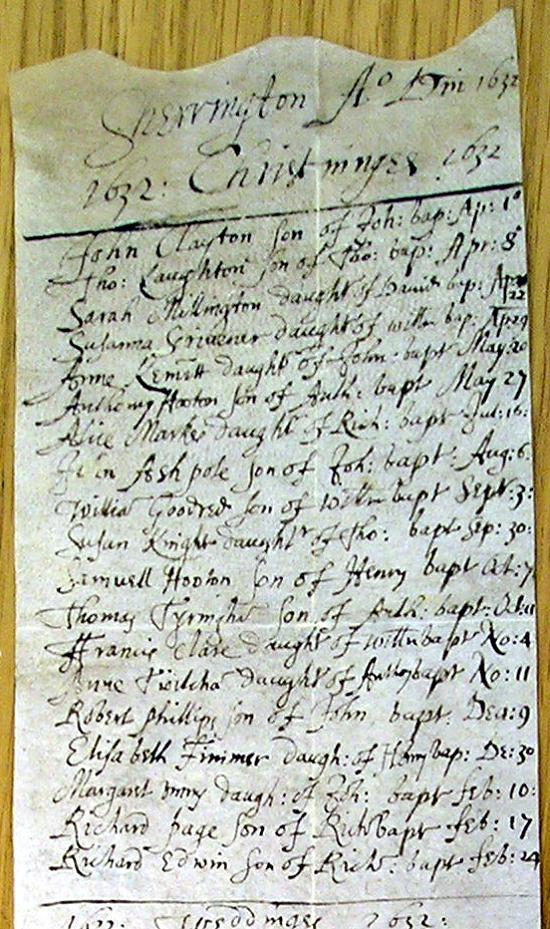 Sherrington Ao Dni 1632
1632: Christninges 1632
John Clayton son of Joh: bap: Ap: 1o
Tho: Laughton son of Tho: bap: Apr: 8
Sarah Millington daught of David bap: Ap 22
Susanna Scrivener daught of Willm bap: Ap 29
Anne Kemitt daught of John bapt May: 20
Anthony Hooton son of Anth: bapt May 27
Alice Markes daught of Rich: bapt Jul: 15:
John Ashpole son of Joh: bapt: Aug: 6:
Willia Goodred son of Willm bapt Sept: 3:
Susan Knight daught of Tho: bapt Sep: 30:
Samuell Hooton son of Henry bapt Oct: 7
Thomas Tyrmghm son of Arth: bapt: Oct: 11
Francis Clare daught of Willm bapt No: 4
Anne daught of Anthony bapt No: 11
Robert Phillips son of John bapt: Dea: 9
Elisabeth Fimmer daugh: of Henry bap: De: 30
Margaret daugh: of Joh: bapt feb: 10:
Richard Page son of Rich bapt feb: 17
Richard Edwin son of Rich: bapt feb: 24
1632: Weddings 1632: